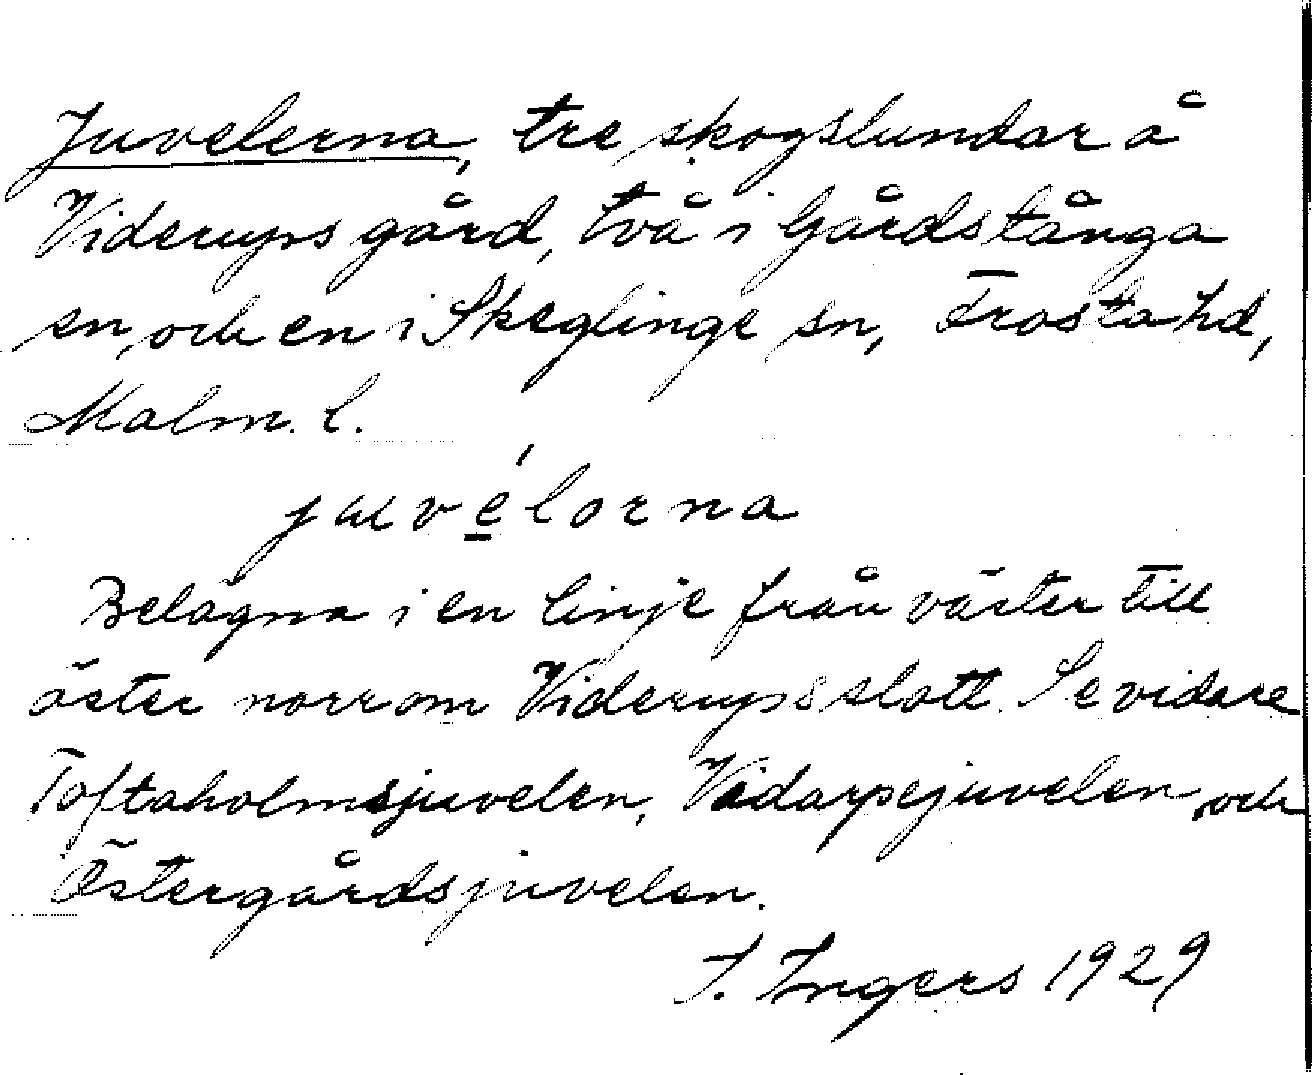 Juvelerna, tre skogslundar å
Viderups gård, två i Gårdstånga
sn, och en i Skeglinge sn, Frosta hd,
Malm. l.
juvélorna
Belägna i en linje från väster till
öster norrom Viderups slott. Se vidare
Toftaholmsjuvelen, Vidarpejuvelen och
Östergårdsjuvelen.
I. Ingers 1929